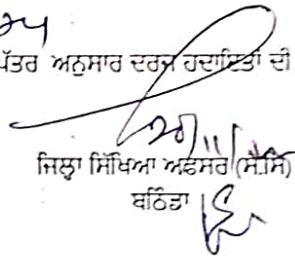 ਪੱਤਰ ਅਨੁਸਾਰ ਦਰਜ ਹਦਾਇਤਾਂ ਦੀ
ਜਿਲ੍ਹਾ ਸਿੱਖਿਆ ਅਫਸਰ (ਸੈ.ਸਿ)
ਬਠਿੰਡਾ